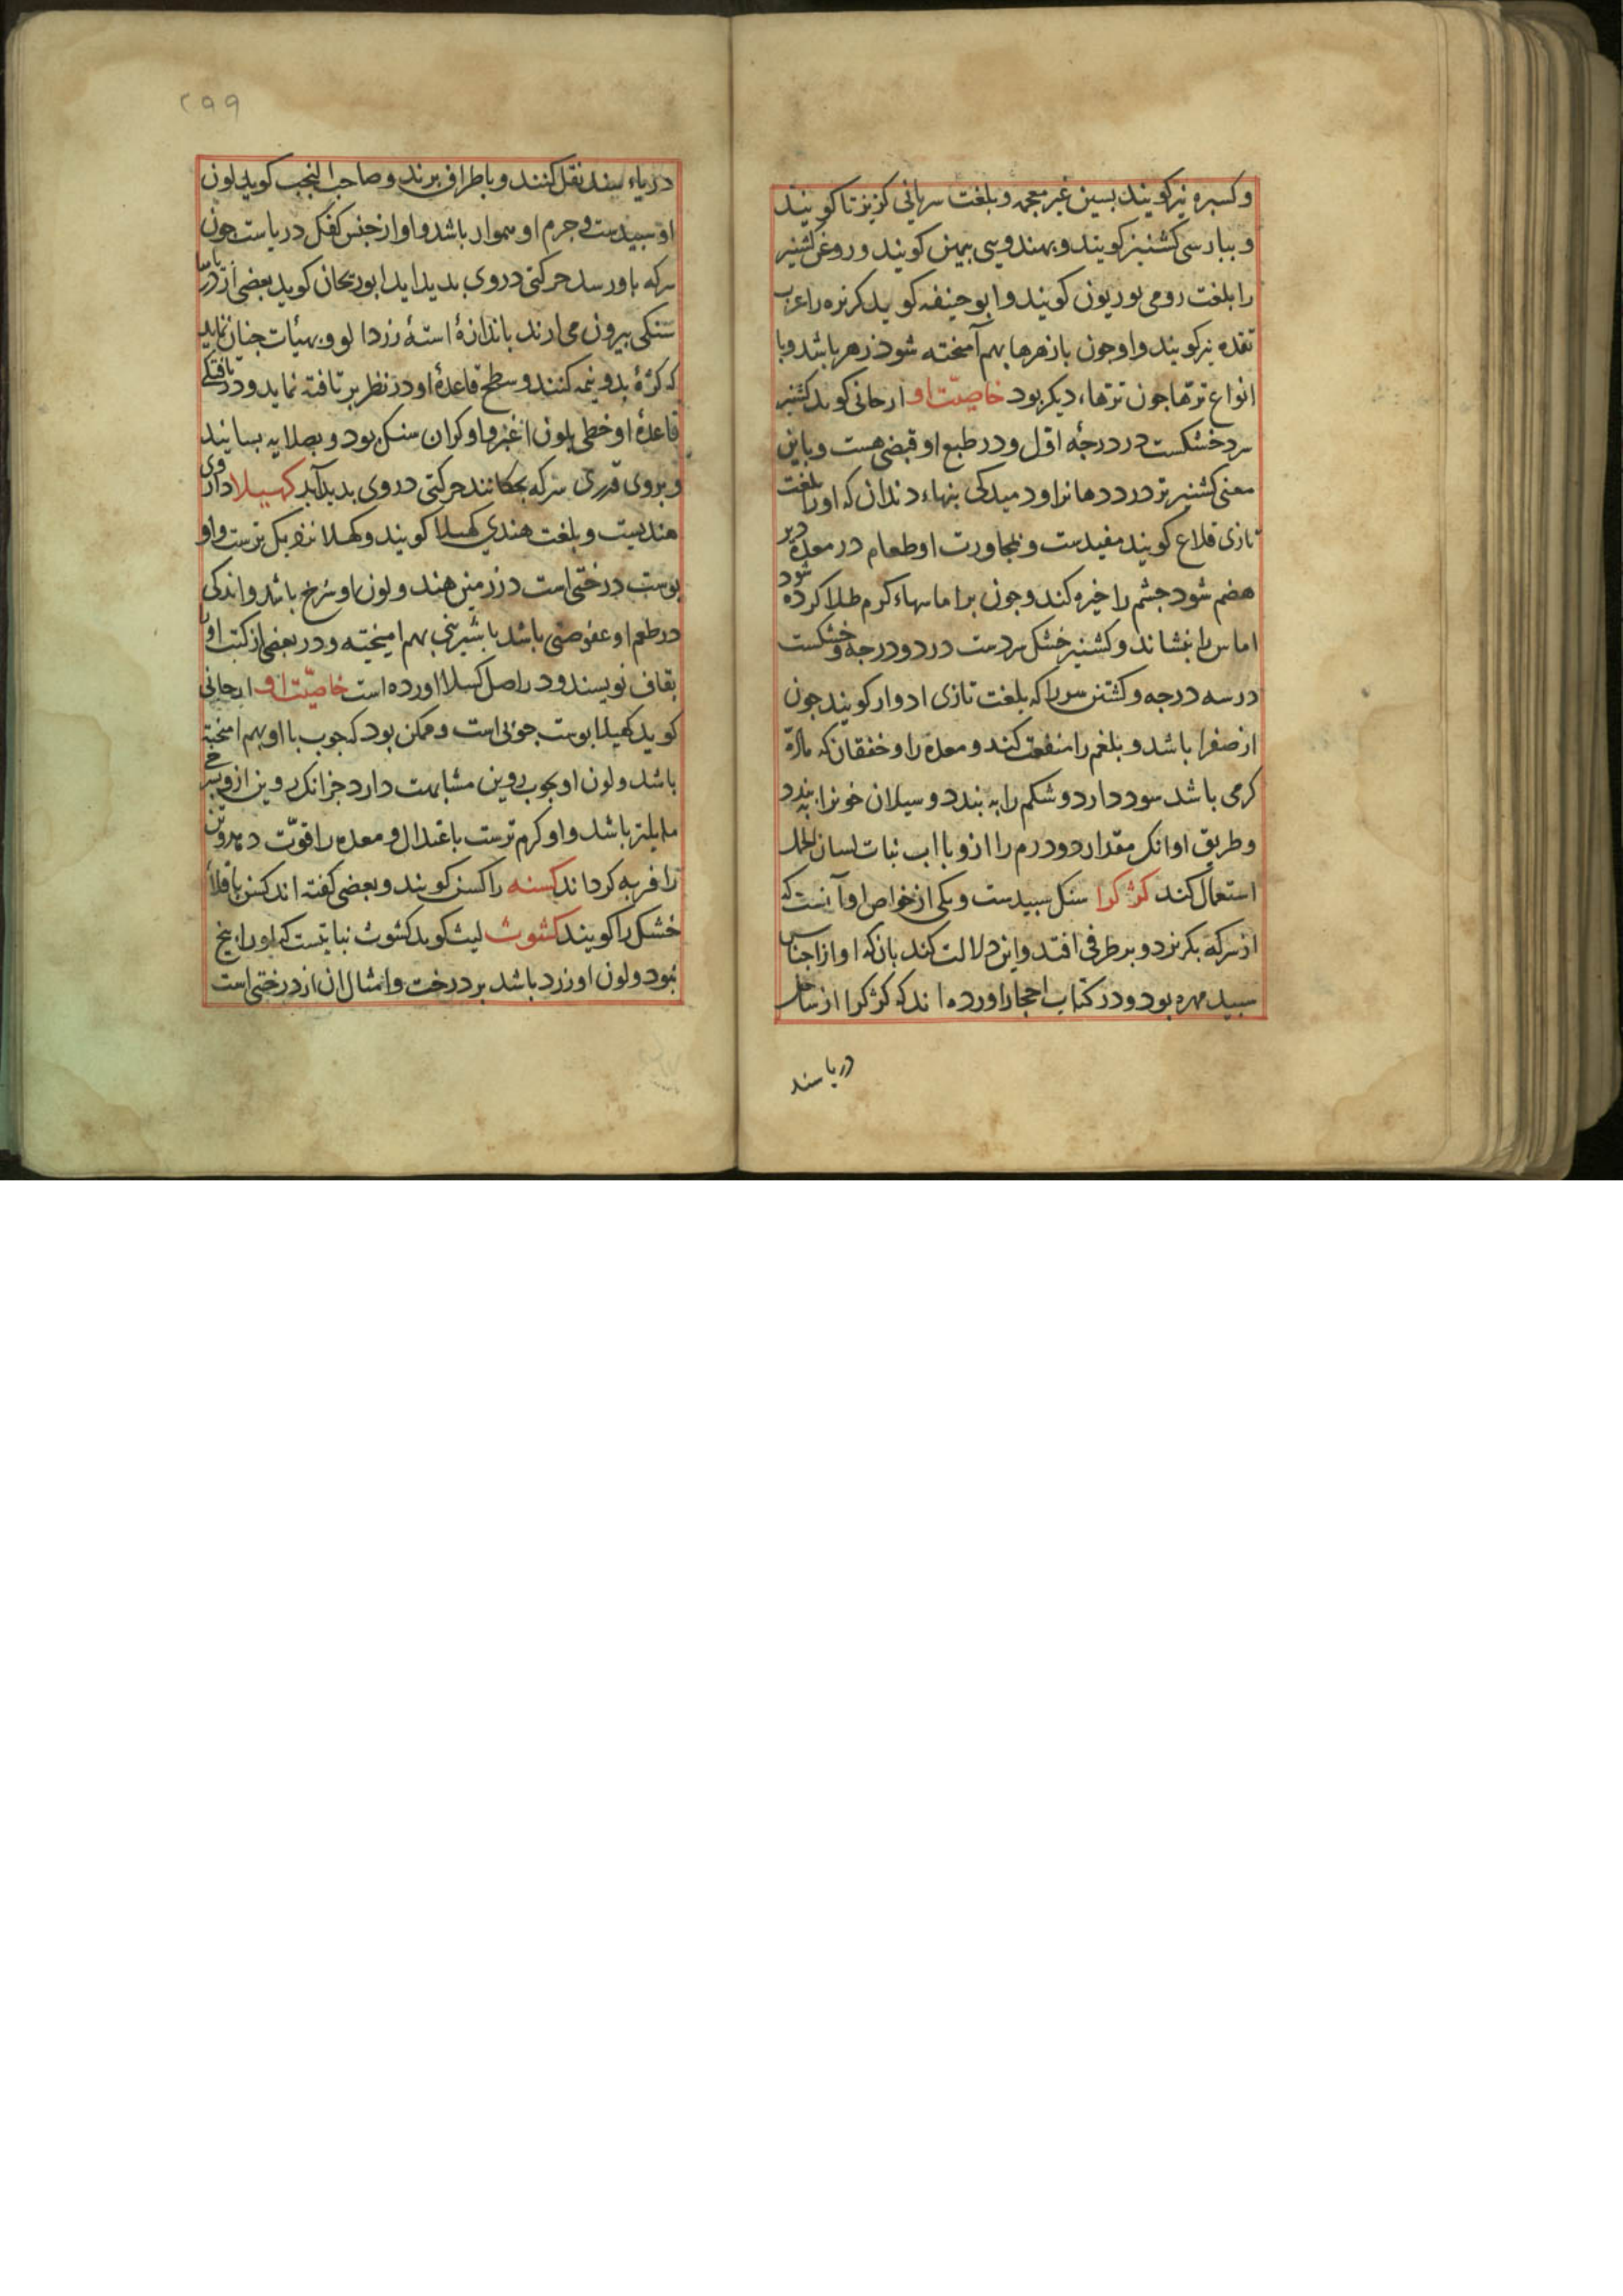 وکسبره نیز کویند بسین غیر معجمه و بلغت سریانی کزیزتا کویند
و بپارسی کشنیز کویند و بهندوی سی بیمن کویند و روغن کشنیز
را بلغت رومی بوریون کویند و ابو حنیفه کوید کزبره را عرب
تقده نیز کویند و او جون با زهرها بهم آمیخته شود زهر باشد و با
انواع ترها جون ترهاء دیکر بود خاصیّت او ارجانی کوید کشنیز
سرد خشکست در درجه اول و در طبع او قبضی هست و باین
معنی کشنیز تر درد دهانرا و دمیدکی بنهاء دندان که او را بلغت
تازی قلاع کویند مفیدست و بمجاورت او طعام در معده دیر
هضم شود جشم را خیره کند و جون بر اماسهاء کرم طلا کرده شود
اماس را بنشاند و کشنیز خشک سردست در دو درجه و خشکست
در سه درجه و کشتن سر را که بلغت تازی ادوار کویند جون
از صفرا باشد و بلغم را منفعت کند و معده را و خفقان که ماده
کرمی باشد سود دارد و شکم را به بندد و سیلان خونرا به بندد
و طریق او انک مقدار دو درم را ازو با اب نبات لسان الحمل
استعمال کند کژ کرا سنک سبیدست و یکی از خواص او آنست که
از سرکه بکریزد و بر طرفی افتد و این دلالت کند بانکه او از اجناس
سبید مهره بود و در کتاب احجار اورده اند که کژ کرا از ساحل
دریا سند
۲۹۹
دریاء سند نقل کنند و باطراف برند و صاحب النخب کوید لون
او سبیدست و جرم او هموار باشد و او از جنس کفک دریاست جون
سرکه باو رسد حرکتی در وی بدید اید ابو ریحان کوید بعضی از دریا
سنکی بیرون می ارند باندازهٔ استهٔ زردالو و بهیأت جنان نماید
که کژهٔ بدو نیمه کنند و سطح قاعدهٔ او در نظر بر تافته نماید و در تافتکی
قاعدهٔ او خطی بلون اغبر و او کران سنک بود و بصلایه بسایند
و بروی قدری سرکه بجکانند حرکتی در وی بدید آید کهسیلا داروی
هندیست و بلغت هندی کهسلا کویند و کهلا نزدیک ترست و او
بوست درختی است در زمین هند و لون او سرخ باشد و اندکی
در طعم او عفوصتی باشد با شیرینی بهم امیخته و در بعضی از کتب او را
بقاف نویسند و در اصل کسلا اورده است خاصیّت او ارجانی
کوید کهیلا بوست جوبی است و ممکن بود که جوب با او بهم امیخته
باشد و لون او بجوب روین مشابهت دارد جز انک روین ازو بسرخی
مایلتر باشد و او کرم ترست باعتدال و معده را قوّت دهد و تن
را فربه کرداند کسنه را کسن کویند و بعضی کفته اند کسن باقلاء
خشک را کویند کشوث لیث کوید کشوث نباتیست که او را بیخ
نبود و لون او زرد باشد بر درخت و امثال ان از درختی است